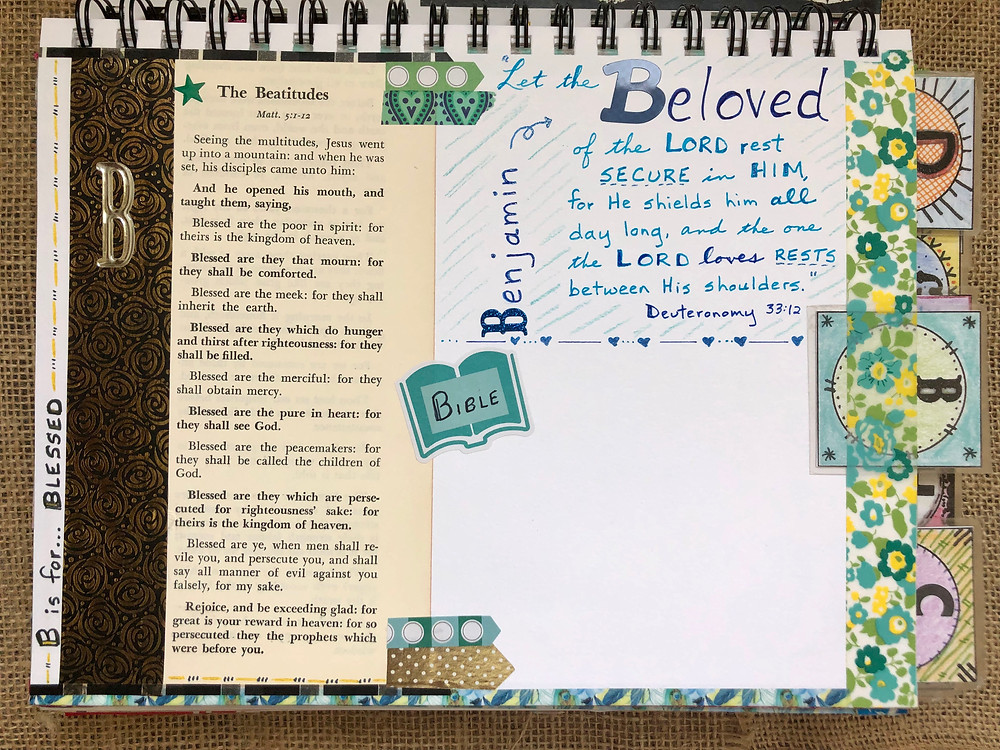 B is for... BLESSED
B
The Beatitudes
Matt. 5:1-12
Seeing the multitudes, Jesus went
up into a mountain: and when he was
set, his disciples came unto him:
And he opened his mouth, and
taught them, saying,
Blessed are the poor in spirit: for
theirs is the kingdom of heaven.
Blessed are they that mourn: for
they shall be comforted.
Blessed are the meek: for they shall
inherit the earth.
Blessed are they which do hunger
and thirst after righteousness: for they
shall be filled.
Blessed are the merciful: for they
shall obtain mercy.
Blessed are the pure in heart: for
they shall see God.
Blessed are the peacemakers: for
they shall be called the children of
God.
Blessed are they which are perse-
cuted for righteousness' sake: for
theirs is the kingdom of heaven.
Blessed are ye, when men shall re-
vile you, and persecute you, and shall
say all manner of evil against you
falsely, for my sake.
Rejoice, and be exceeding glad: for
great is your reward in heaven: for so
persecuted they the prophets which
were before you.
"Let the Beloved
of the LORD rest
SECURE in HIM,
for He shields him all
day long, and the one
the LORD loves RESTS
between His shoulders."
Deuteronomy 33:12
Benjamin
BIBLE
D
B
C